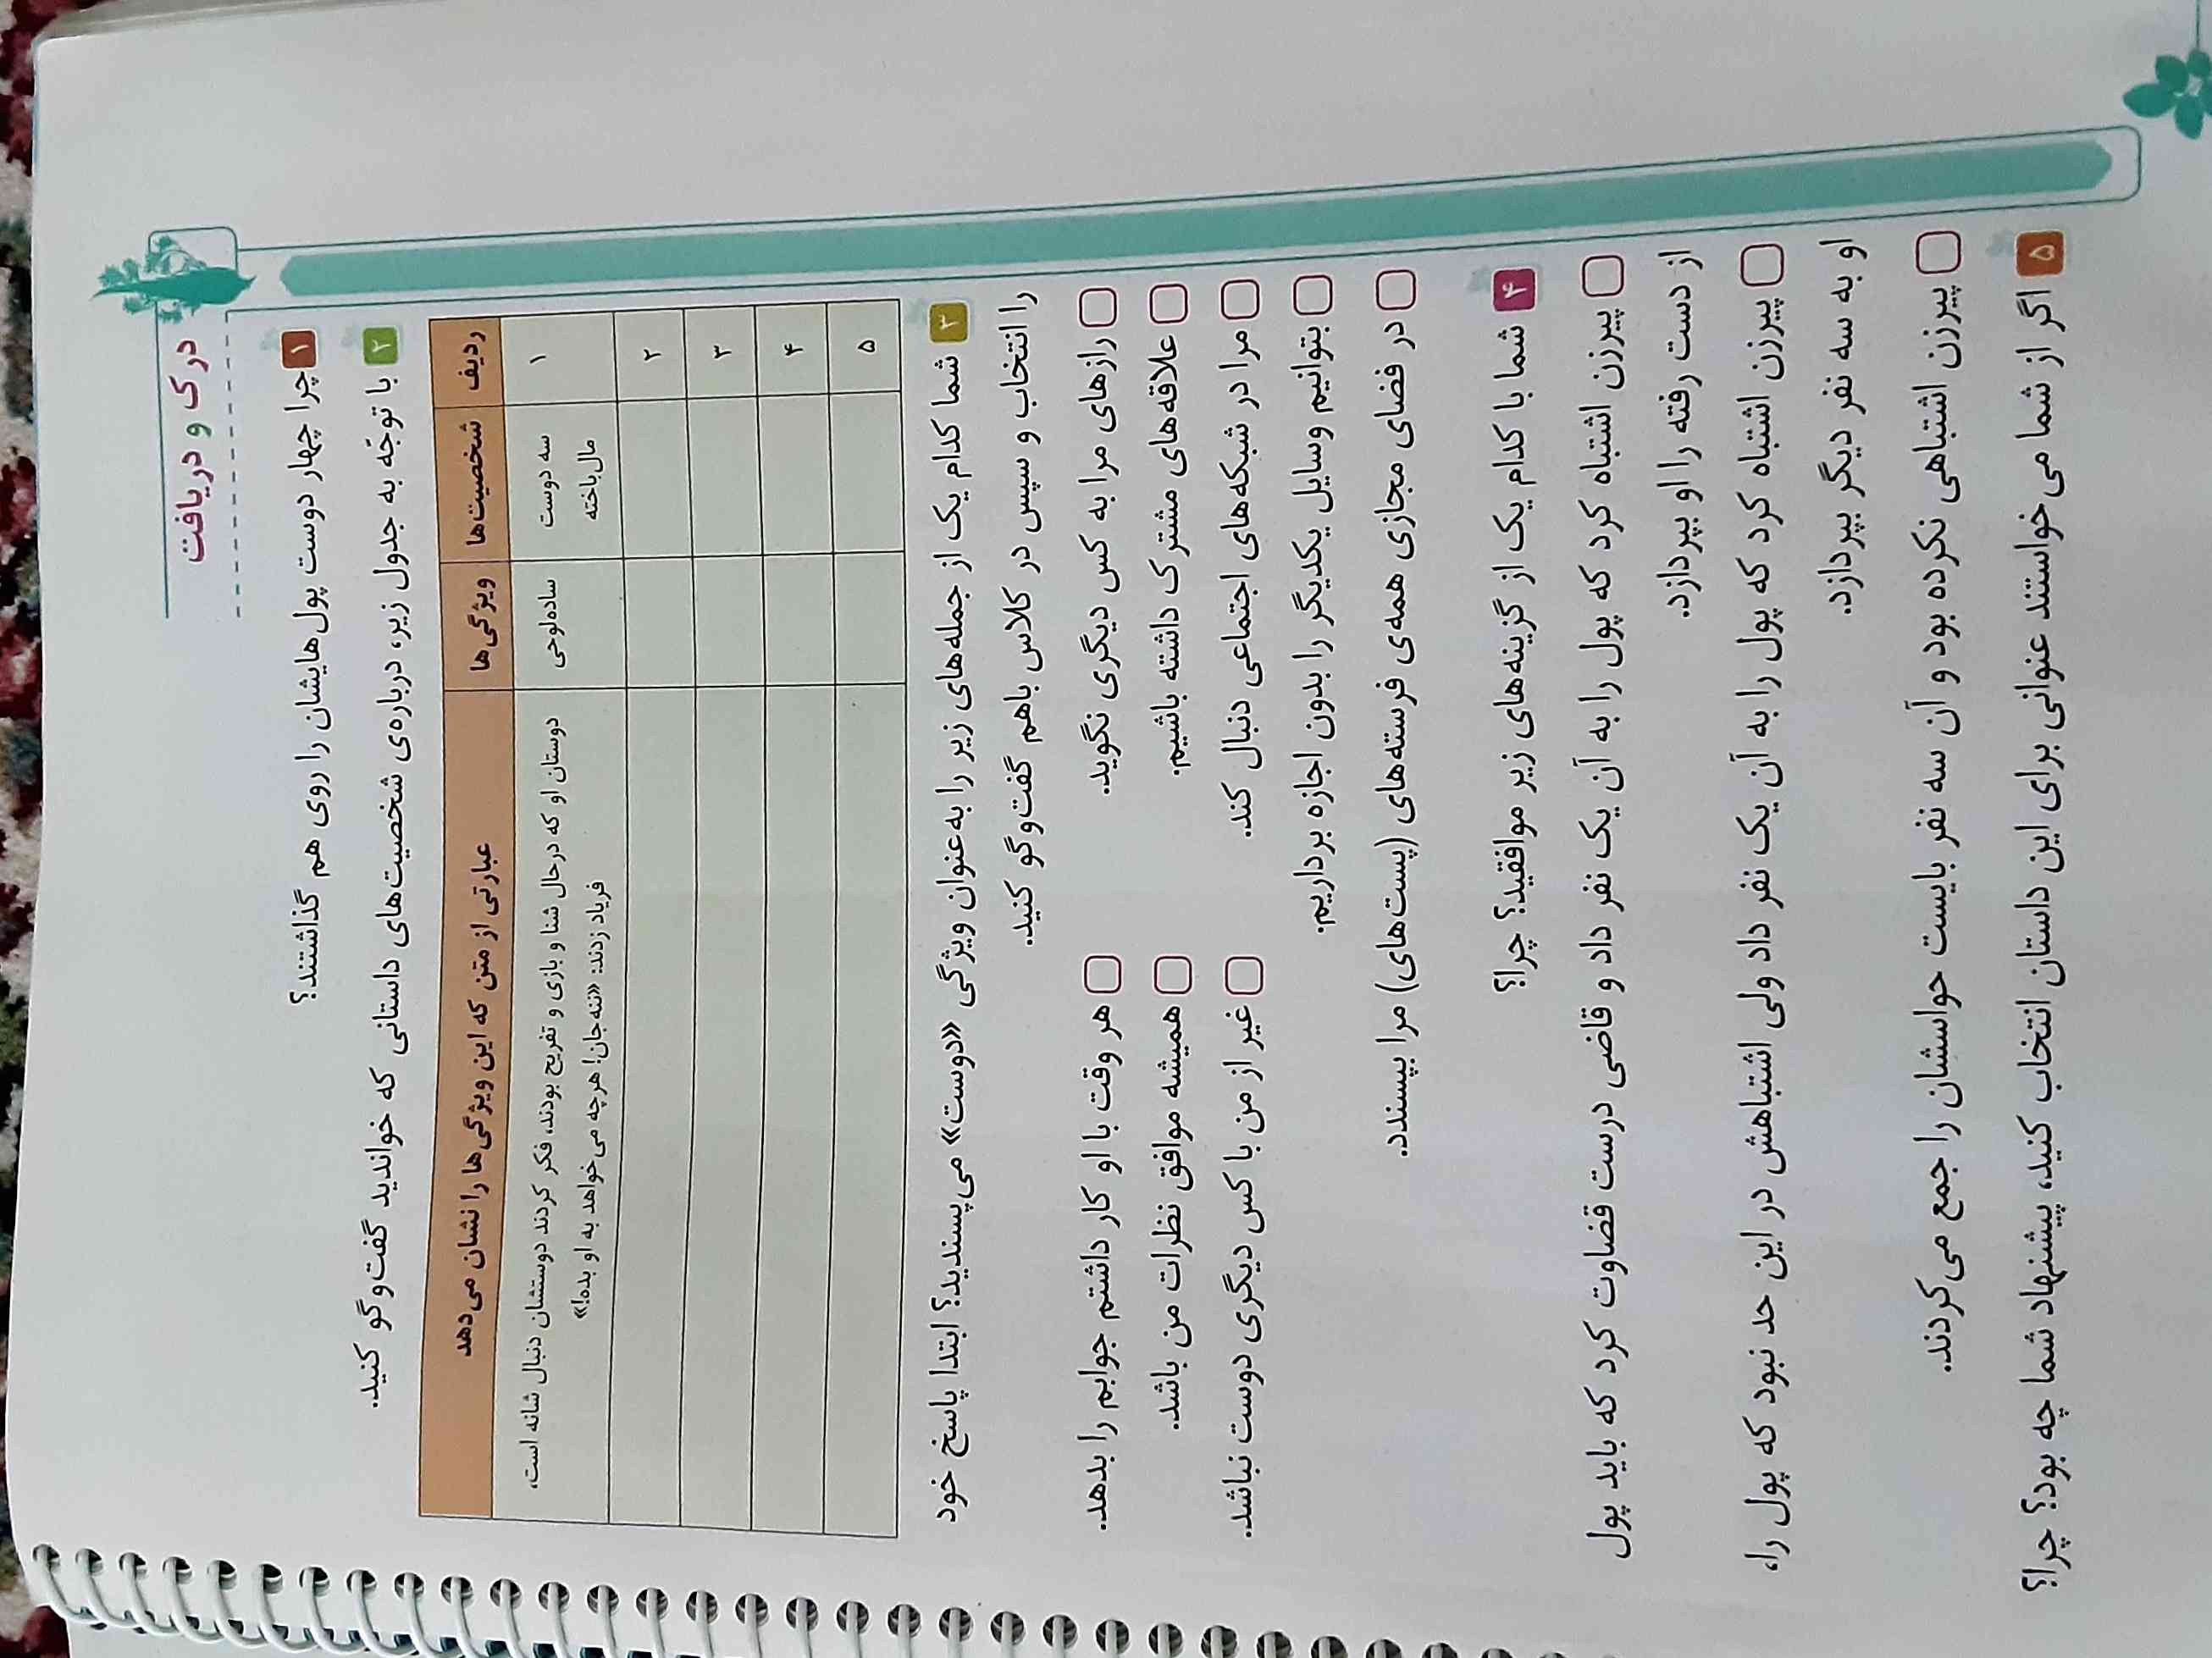 درک و دریافت
۱ چرا چهار دوست پول‌هایشان را روی هم گذاشتند؟
۲ با توجّه به جدول زیر، درباره‌ی شخصیت‌های داستانی که خواندید گفت‌وگو کنید.
ردیف شخصیت‌ها ویژگی‌ها عبارتی از متن که این ویژگی‌ها را نشان می‌دهد
۱ سه دوست مال‌باخته ساده‌لوحی دوستان او که درحال شنا و بازی و تفریح بودند، فکر کردند دوستشان دنبال شانه است،
فریاد زدند: «ننه‌جان! هرچه می‌خواهد به او بده!»
۲
۳
۴
۵
۳ شما کدام یک از جمله‌های زیر را به‌عنوان ویژگی «دوست» می‌پسندید؟ ابتدا پاسخ خود
را انتخاب و سپس در کلاس باهم گفت‌وگو کنید.
رازهای مرا به کس دیگری نگوید. هر وقت با او کار داشتم جوابم را بدهد.
علاقه‌های مشترک داشته باشیم. همیشه موافق نظرات من باشد.
مرا در شبکه‌های اجتماعی دنبال کند. غیر از من با کس دیگری دوست نباشد.
بتوانیم وسایل یکدیگر را بدون اجازه برداریم.
در فضای مجازی همه‌ی فرسته‌های (پست‌های) مرا بپسندد.
۴ شما با کدام یک از گزینه‌های زیر موافقید؟ چرا؟
پیرزن اشتباه کرد که پول را به آن یک نفر داد و قاضی درست قضاوت کرد که باید پول
از دست رفته را او بپردازد.
پیرزن اشتباه کرد که پول را به آن یک نفر داد ولی اشتباهش در این حد نبود که پول را،
او به سه نفر دیگر بپردازد.
پیرزن اشتباهی نکرده بود و آن سه نفر بایست حواسشان را جمع می‌کردند.
۵ اگر از شما می‌خواستند عنوانی برای این داستان انتخاب کنید، پیشنهاد شما چه بود؟ چرا؟